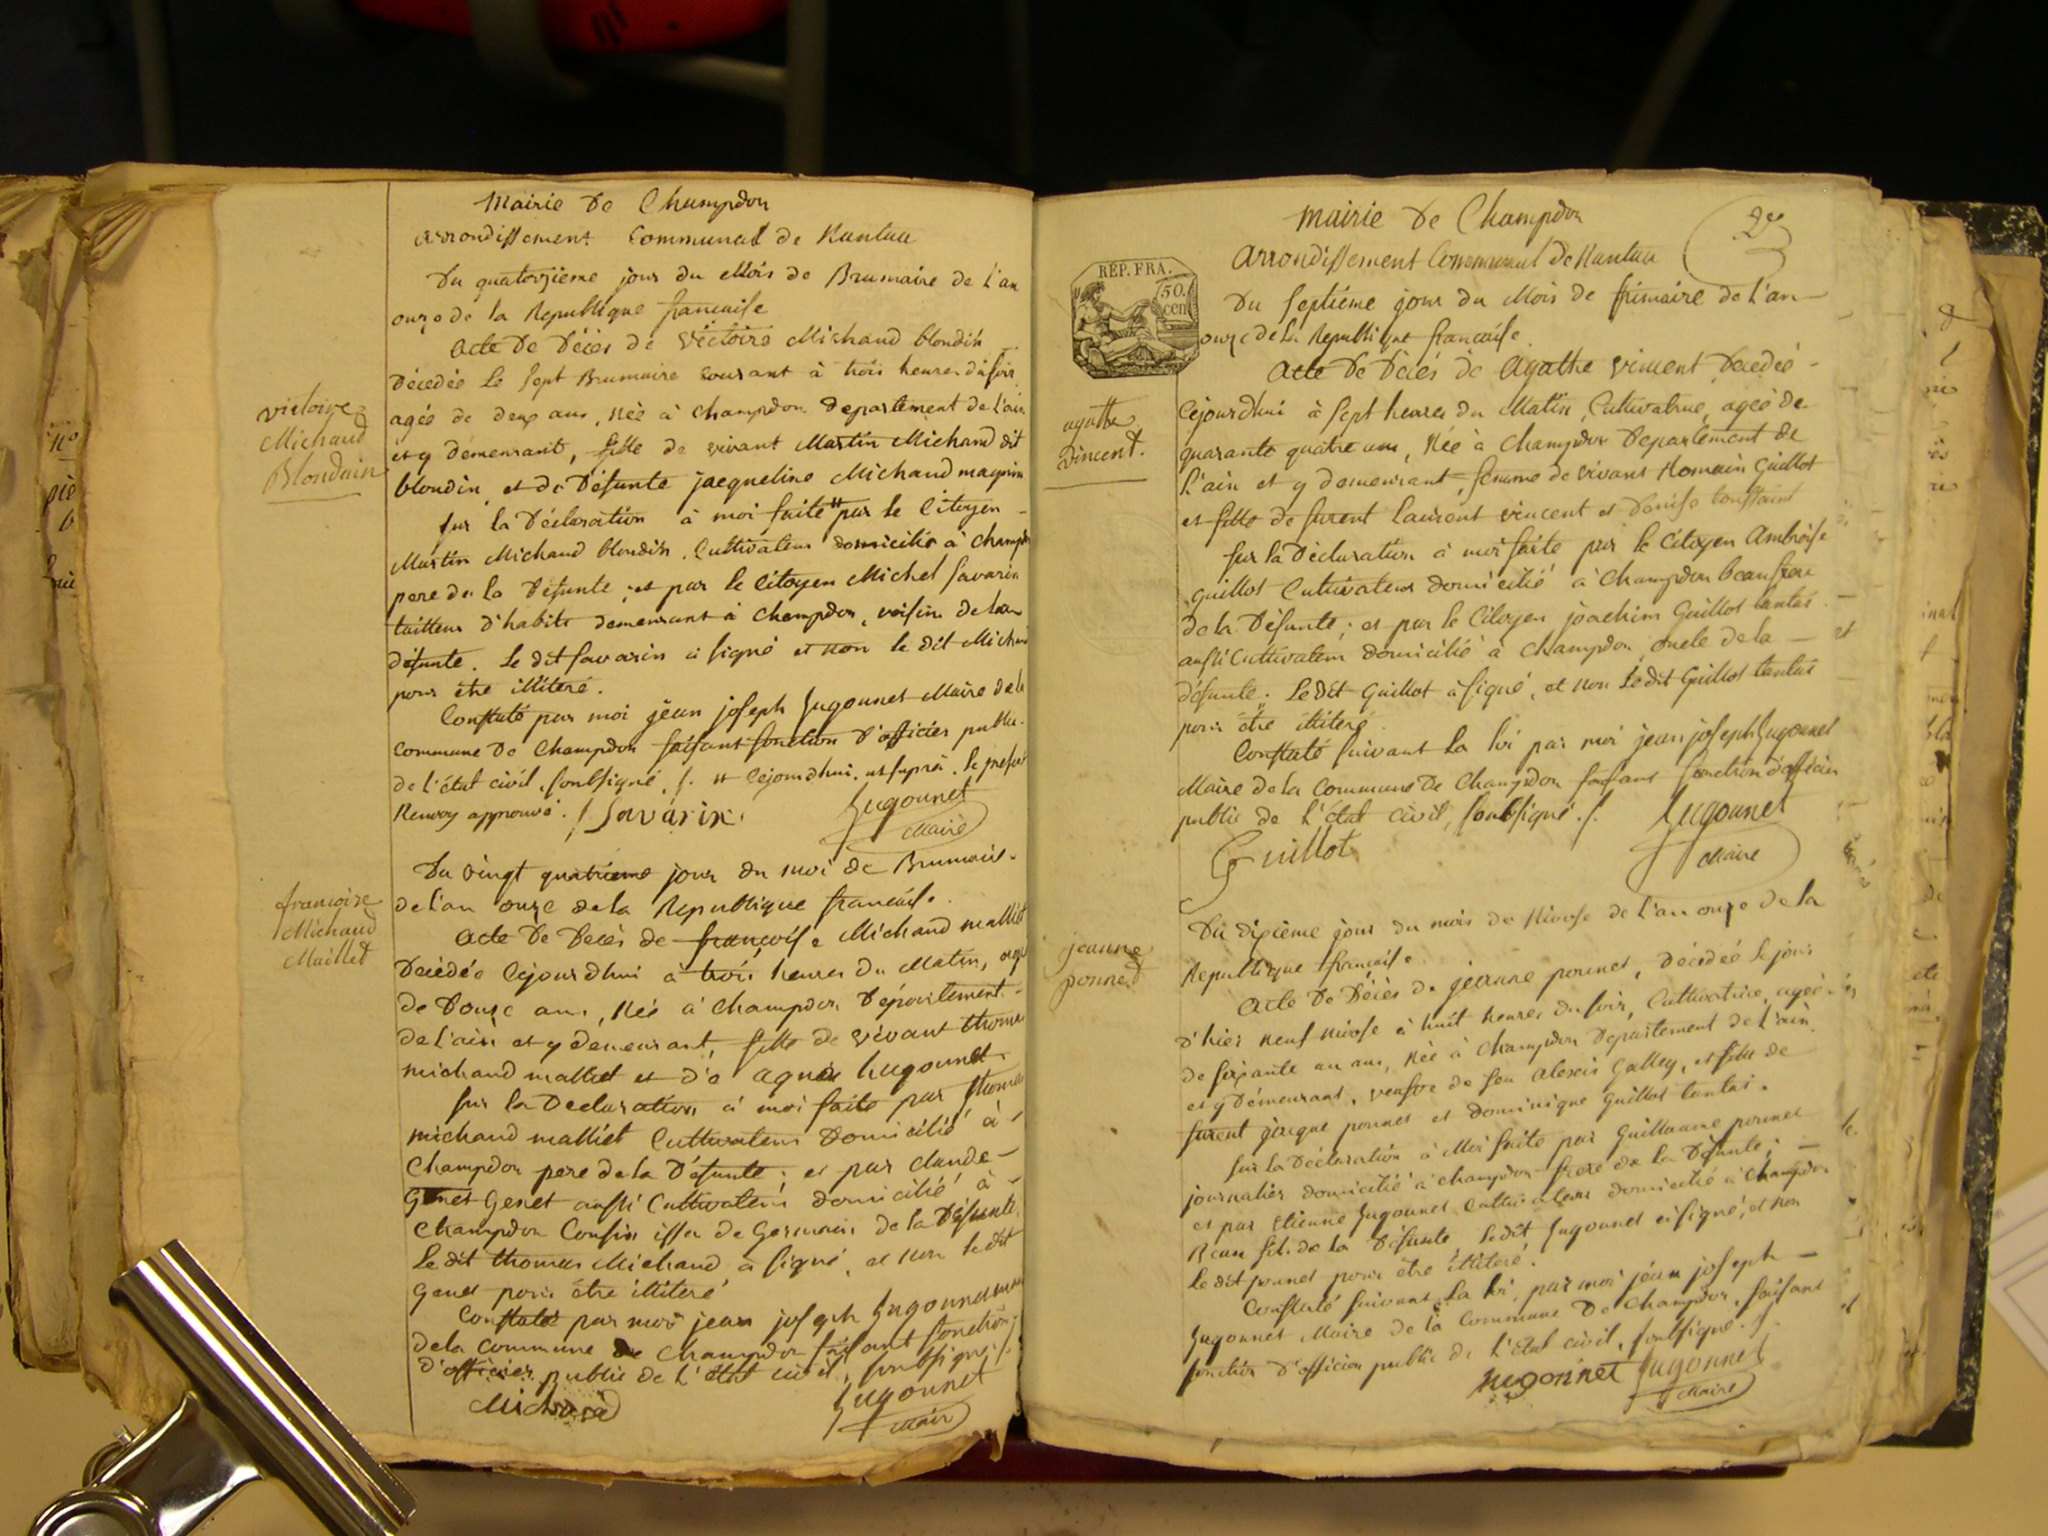 Mairie De Champdor
arrondissement Communal de Nantua
Du quatorzieme jour du Mois de Brumaire de l'an
onze de la Republique francaise
acte De Décès de Victoire Michaud blondin
Décedée le sept Brumaire courant à trois heures du soir
agée de deux ans, née à champdor departement de l'ain
et y demeurant, fille de vivant Martin Michaud dit
blondin, et de Défunte jacqueline Michaud
sur la Déclaration à moi faite # par le Citoyen
Martin Michaud blondin, Cultivateur domicilié à champdor
pere de la Défunte; et par le Citoyen Michel Savarin
tailleur d'habits demeurant à champdor, voisin de la
défunte. Le dit Savarin a signé et non le dit Michaud
pour être illiteré.
Constaté par moi jean joseph hugonnet Maire de la
commune De Champdor faisant fonction D'officier public
de l'état civil, soussigné ./. # Cejourdhui. ut supra. le présent
Renvoy approuvé. / Savarin
hugonnet
Maire
victoire
Michaud
Blondain
Du vingt quatrieme jour du moi de Brumaire
de l'an onze de la Republique francaise.
acte De Décès de francoise Michaud malliet
Décédée Cejourdhui à trois heures du Matin, agée
de Douze ans, née à Champdor Département
de l'ain et y demeurant, fille de vivant thomas
michaud malliet et d'e agnès hugonnet
sur la Déclaration à moi faite par thomas
michaud malliet Cultivateur Domicilié à
Champdor pere de la Défunte; et par claude
Genet Genet aussi Cultivateur domicilié à
Champdor Cousin issu de Germain de la Défunte.
Le dit thomas Michaud a signé, et non le dit
Genet pour être illiteré
Constaté par moi jean joseph hugonnet maire
de la commune De Champdor faisant fonction
d'officier public de l'état civil, soussigné ./.
Michaud
hugonnet
Maire
francoise
Michaud
Maillet
mairie de Champdor
2e
arrondissement Communal de Nantua
RÉP. FRA.
50.
cen
Du septième jour du Mois de frimaire de l'an
onze de la Republique francaise.
acte De Décès de agathe vincent Décedée
Cejourdhui à sept heures du Matin, Cultivatrice, agée de
quarante quatre ans, née à Champdor Département de
l'ain et y demeurant, femme de vivant Romain Guillot
et fille de furent laurent vincent et denise
sur la Déclaration à moi faite par le Citoyen Ambroise
guillot Cultivateur domicilié à Champdor beaufrere
de la Défunte; et par le Citoyen joachim Guillot tantai
aussi Cultivateur domicilié à Champdor, oncle de la
défunte. Le dit Guillot à signé, et non Le dit Guillot tantai
pour être illiteré.
Constaté suivant la loi par moi jean joseph hugonnet
Maire de la Commune De Champdor faisant fonction d'officier
public de l'état civil, soussigné ./.
hugonnet
Maire
Guillot
agathe
vincent.
Du dixième jour du mois de Nivose de l'an onze de la
Republique francaise.
acte De Décès de jeanne ponnet, Décédée le jour
d'hier neuf nivose à huit heures du soir, Cultivatrice, agée
de soixante un ans, née à Champdor Departement de l'ain,
et y Demeurant, veufve de feu alexis Galley, et fille de
furent jacque ponnet et dominique guillot tantai.
sur la Déclaration à Moi faite par Guillaume ponnet
journalier domicilié à Champdor frere de la Défunte;
et par Etienne hugonnet Cultivateur domicilié à Champdor
Beau fils de la Défunte. Ledit hugonnet a signé, et non
Le dit ponnet pour être illiteré.
Constaté suivant la loi, par moi jean joseph
hugonnet Maire de la Commune De Champdor, faisant
fonction D'officier public de l'état civil, soussigné ./.
hugonnet
hugonnet
Maire
jeanne
ponnet